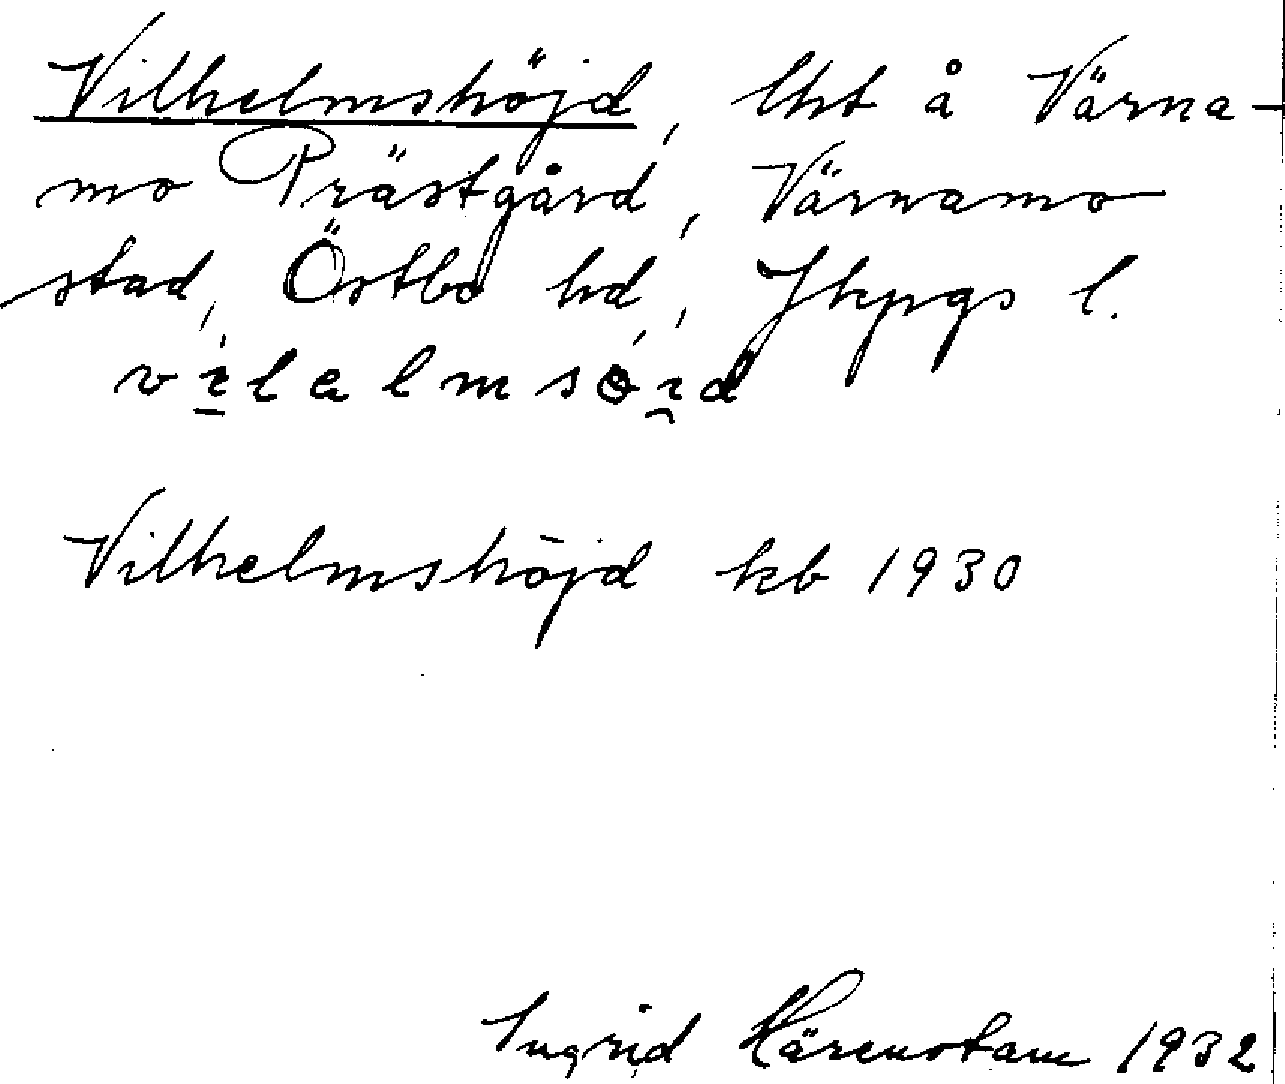 Vilhelmshöjd, lht å Värna-
mo Prästgård, Värnamo
stad, Östbo hd, Jkpgs l.
Vilhelmshöjd kb 1930
Ingrid Härenstam 1932